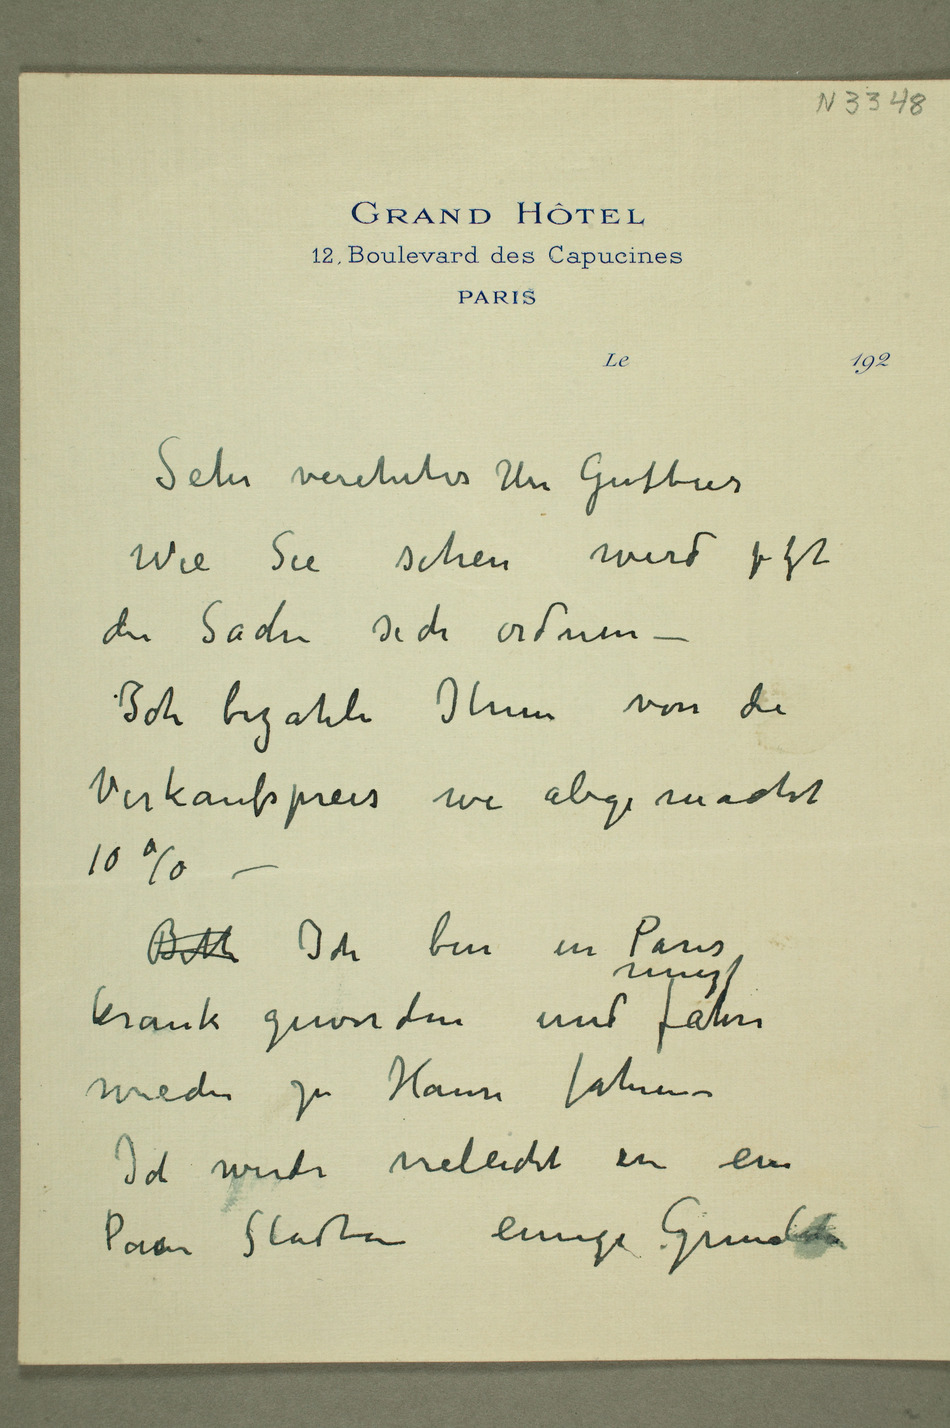 N 3348
GRAND HÔTEL
12, Boulevard des Capucines
PARIS
Le 192
Sehr verehrter Herr Gutbier
Wie Sie sehen wird jetzt
die Sache sich ordnen —
Ich bezahle Ihnen von die
Verkaufspreis wie abgemacht
10 % —
Ich bin in Paris
krank geworden und fahre
wieder zu Hause fahren
Ich werde vieleicht in ein
Paar Stadten einige